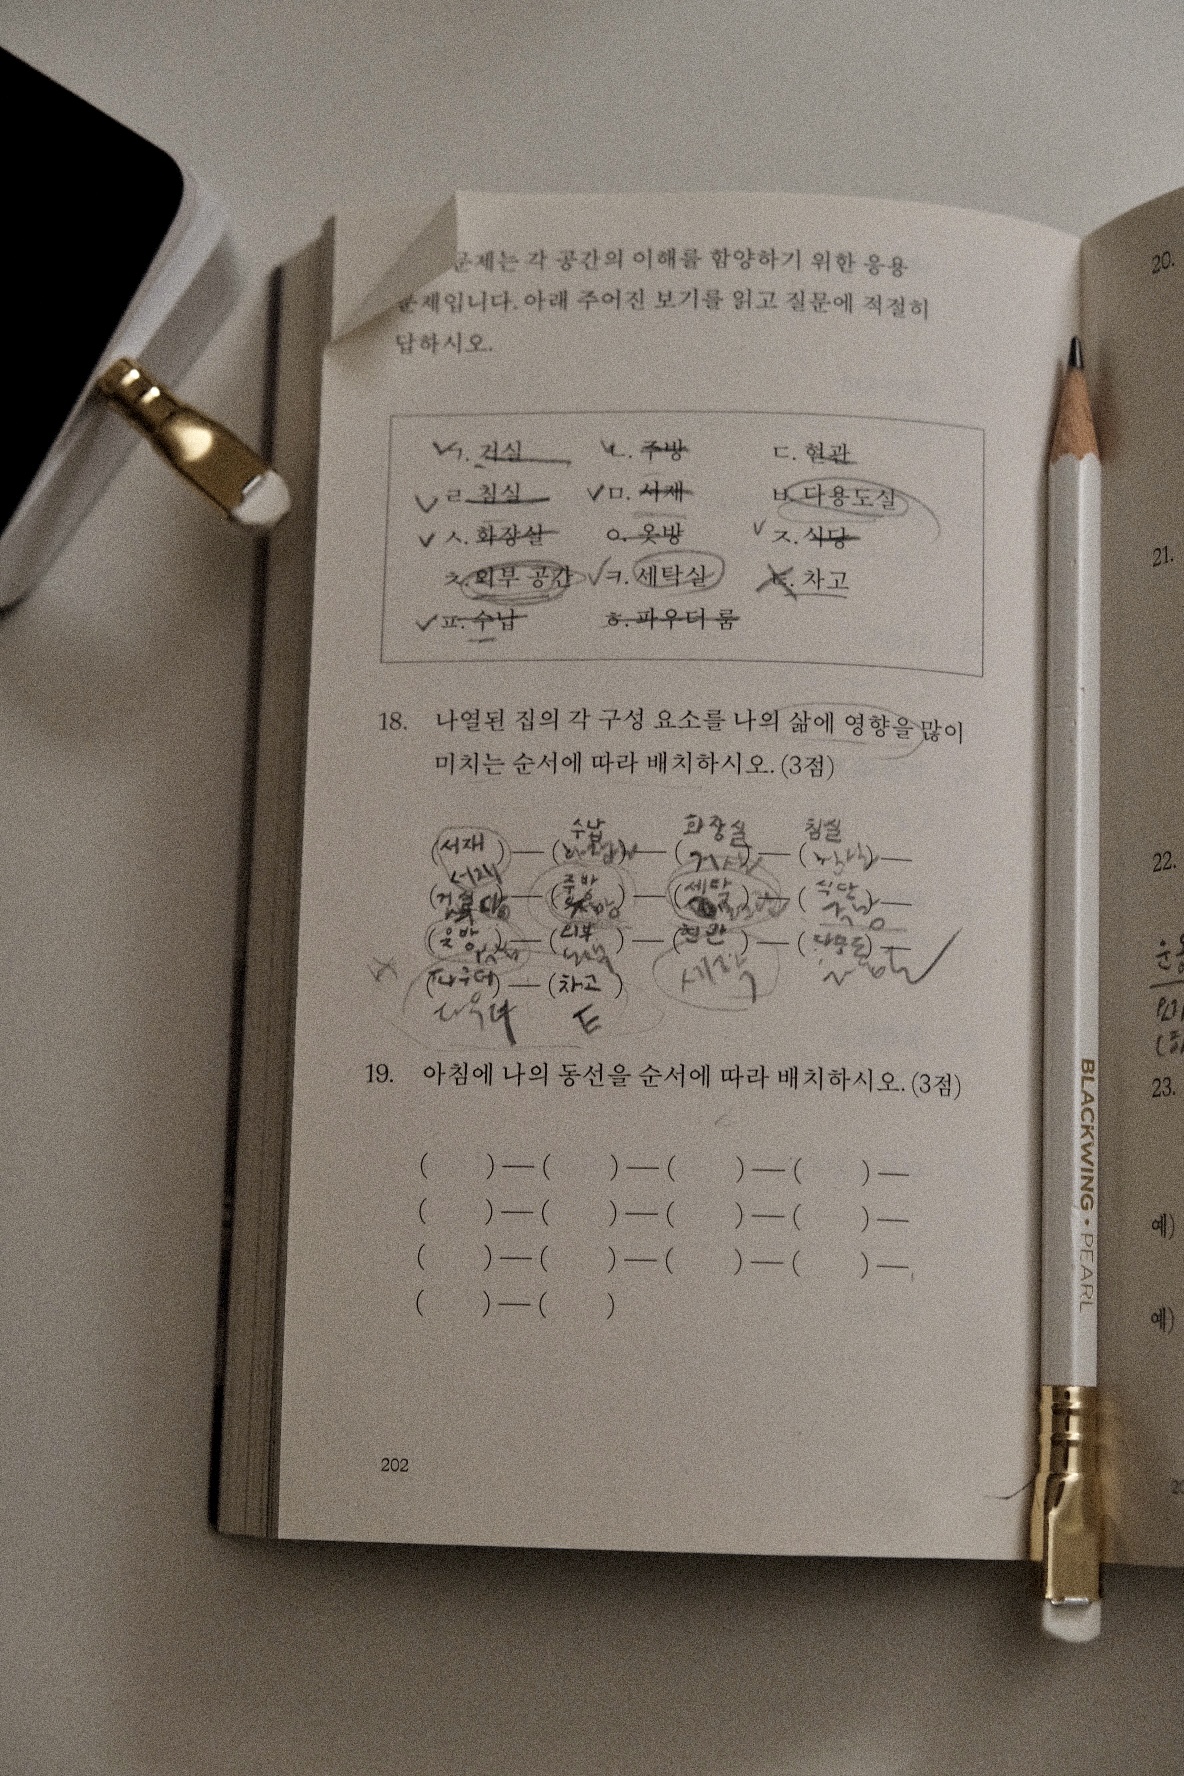 문제는 각 공간의 이해를 함양하기 위한 응용
문제입니다. 아래 주어진 보기를 읽고 질문에 적절히
답하시오.
ㄱ. 거실 ㄴ. 주방 ㄷ. 현관
ㄹ. 침실 ㅁ. 서재 ㅂ. 다용도실
ㅅ. 화장실 ㅇ. 옷방 ㅈ. 식당
ㅊ. 외부 공간 ㅋ. 세탁실 ㅌ. 차고
ㅍ. 수납 ㅎ. 파우더 룸
18. 나열된 집의 각 구성 요소를 나의 삶에 영향을 많이
미치는 순서에 따라 배치하시오. (3점)
수납 화장실 침실
(서재) — ( ) — ( ) — ( ) —
서재
( ) — (주방) — (세탁) — (식당) —
(옷방) — (외부) — (현관) — ( ) —
세탁
(파우더) — (차고)
E
19. 아침에 나의 동선을 순서에 따라 배치하시오. (3점)
( ) — ( ) — ( ) — ( ) —
( ) — ( ) — ( ) — ( ) —
( ) — ( ) — ( ) — ( ) —
( ) — ( )
202
BLACKWING • PEARL
20.
21.
22.
23.
예)
예)